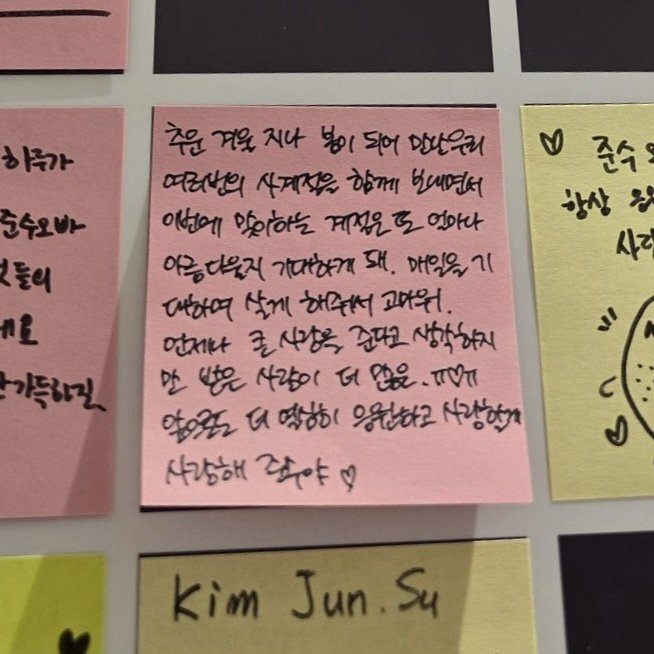 하루가
준수오빠
들의
가득하길
추운 겨울 지나 봄이 되어 만난 우리
여러번의 사계절을 함께 보내면서
이번에 맞이하는 계절은 또 얼마나
아름다울지 기대하게 돼. 매일을 기
대하며 살게 해줘서 고마워.
언제나 큰 사랑을 준다고 생각하지
만 받은 사랑이 더 많음. ㅠ♡ㅠ
앞으로도 더 열심히 응원하고 사랑할게
사랑해 준수야 ♡
♡ 준수
항상
사랑
Kim Jun. Su